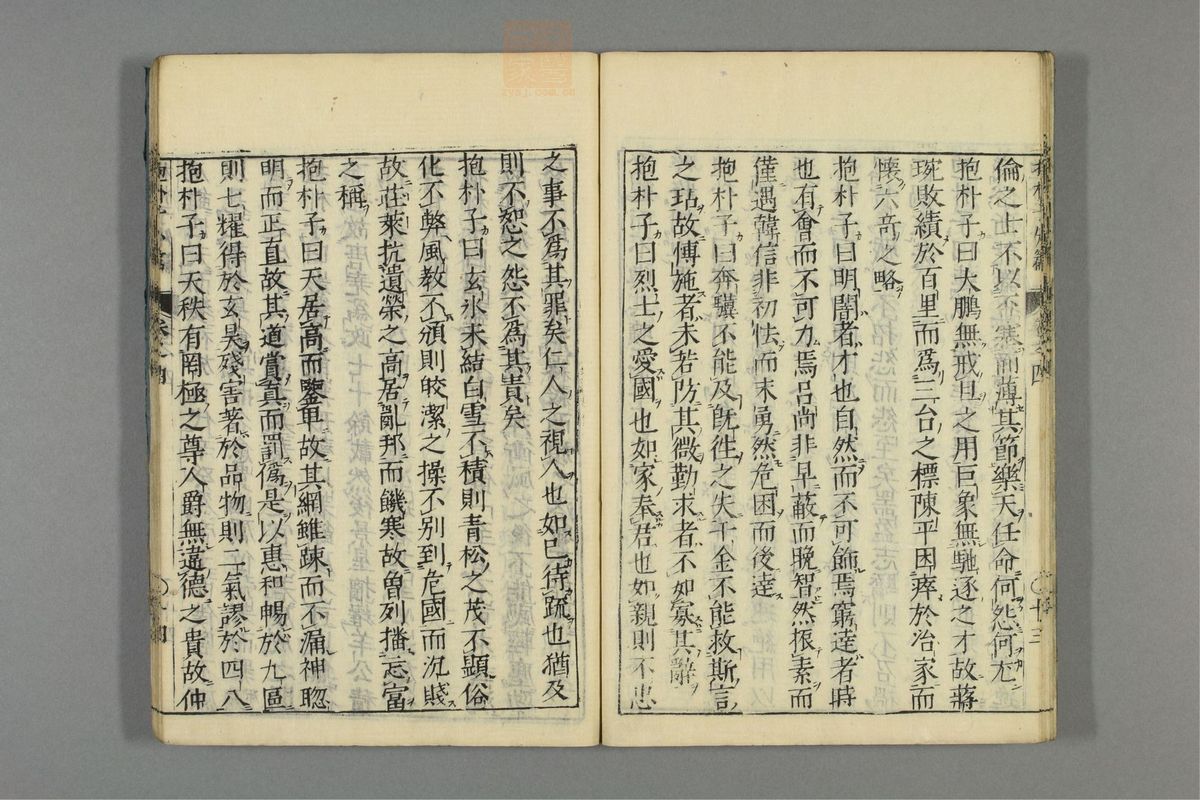 倫之士不以否塞而薄其節樂天任命何怨何尤
抱朴子曰大鵬無戒旦之用巨象無馳逐之才故蔣
琬敗績於百里而為三台之標陳平困瘁於治家而
懷六奇之略
抱朴子曰明闇者才也自然而不可飾焉窮達者時
也有會而不可力焉呂尚非早蔽而晚智然振素而
僅遇韓信非初怯而末勇然危困而後達
抱朴子曰奔驥不能及旣徃之失千金不能救斯言
之玷故博施者未若防其微勤求者不如寡其辭
抱朴子曰烈士之愛國也如家奉君也如親則不忠
之事不為其罪矣仁人之視人也如巳待疏也猶及
則不恕之怨不為其責矣
抱朴子曰玄氷未結白雪不積則青松之茂不顯俗
化不弊風教不頹則皎潔之操不別到危國而沉賤
故莊萊抗遺榮之高居亂邦而饑寒故曾列播忘富
之稱
抱朴子曰天居高而鑒卑故其網雖疎而不漏神聦
明而正直故其道賞真而罰僞是以惠和暢於九區
則七耀得於玄昊殘害著於品物則二氣謬於四八
抱朴子曰天秩有罔極之尊人爵無違德之貴故仲